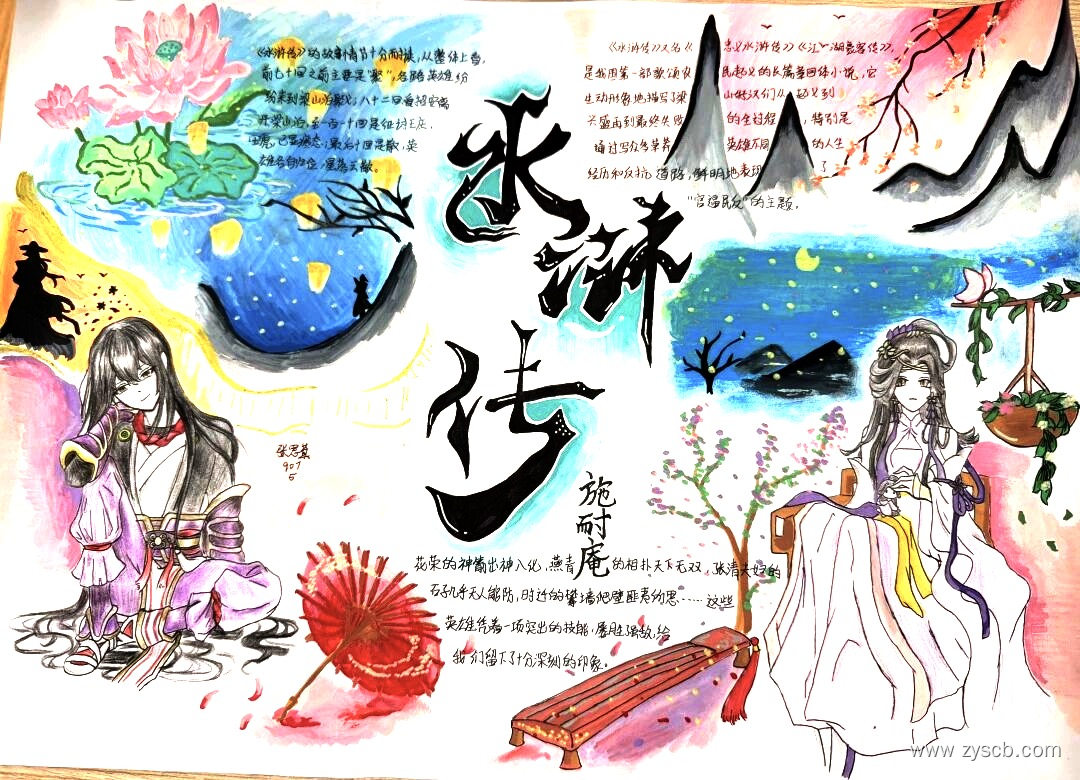 《水浒传》的故事情节十分耐读,从整体上看,
前七十回之前主要是"聚",各路英雄纷
纷来到梁山泊聚义;八十二回受招安离
开梁山泊,至一百一十回是征讨王庆、
田虎,已显疲态;最后十回是散,英
雄各自归位,星落云散。
水浒传
《水浒传》又名《忠义水浒传》《江湖豪客传》,
是我国第一部歌颂农民起义的长篇章回体小说,它
生动形象地描写了梁山好汉们从起义到
兴盛再到最终失败的全过程,特别是
通过写众多草莽英雄不同的人生
经历和反抗道路,鲜明地表现了
"官逼民反"的主题。
施耐庵
907
5
花荣的神箭出神入化,燕青的相扑天下无双,张清夫妇的
石子几乎无人能防,时迁的攀墙爬壁匪夷所思……这些
英雄凭着一项突出的技能,屡胜强敌,给
我们留下了十分深刻的印象。
www.zyscb.com